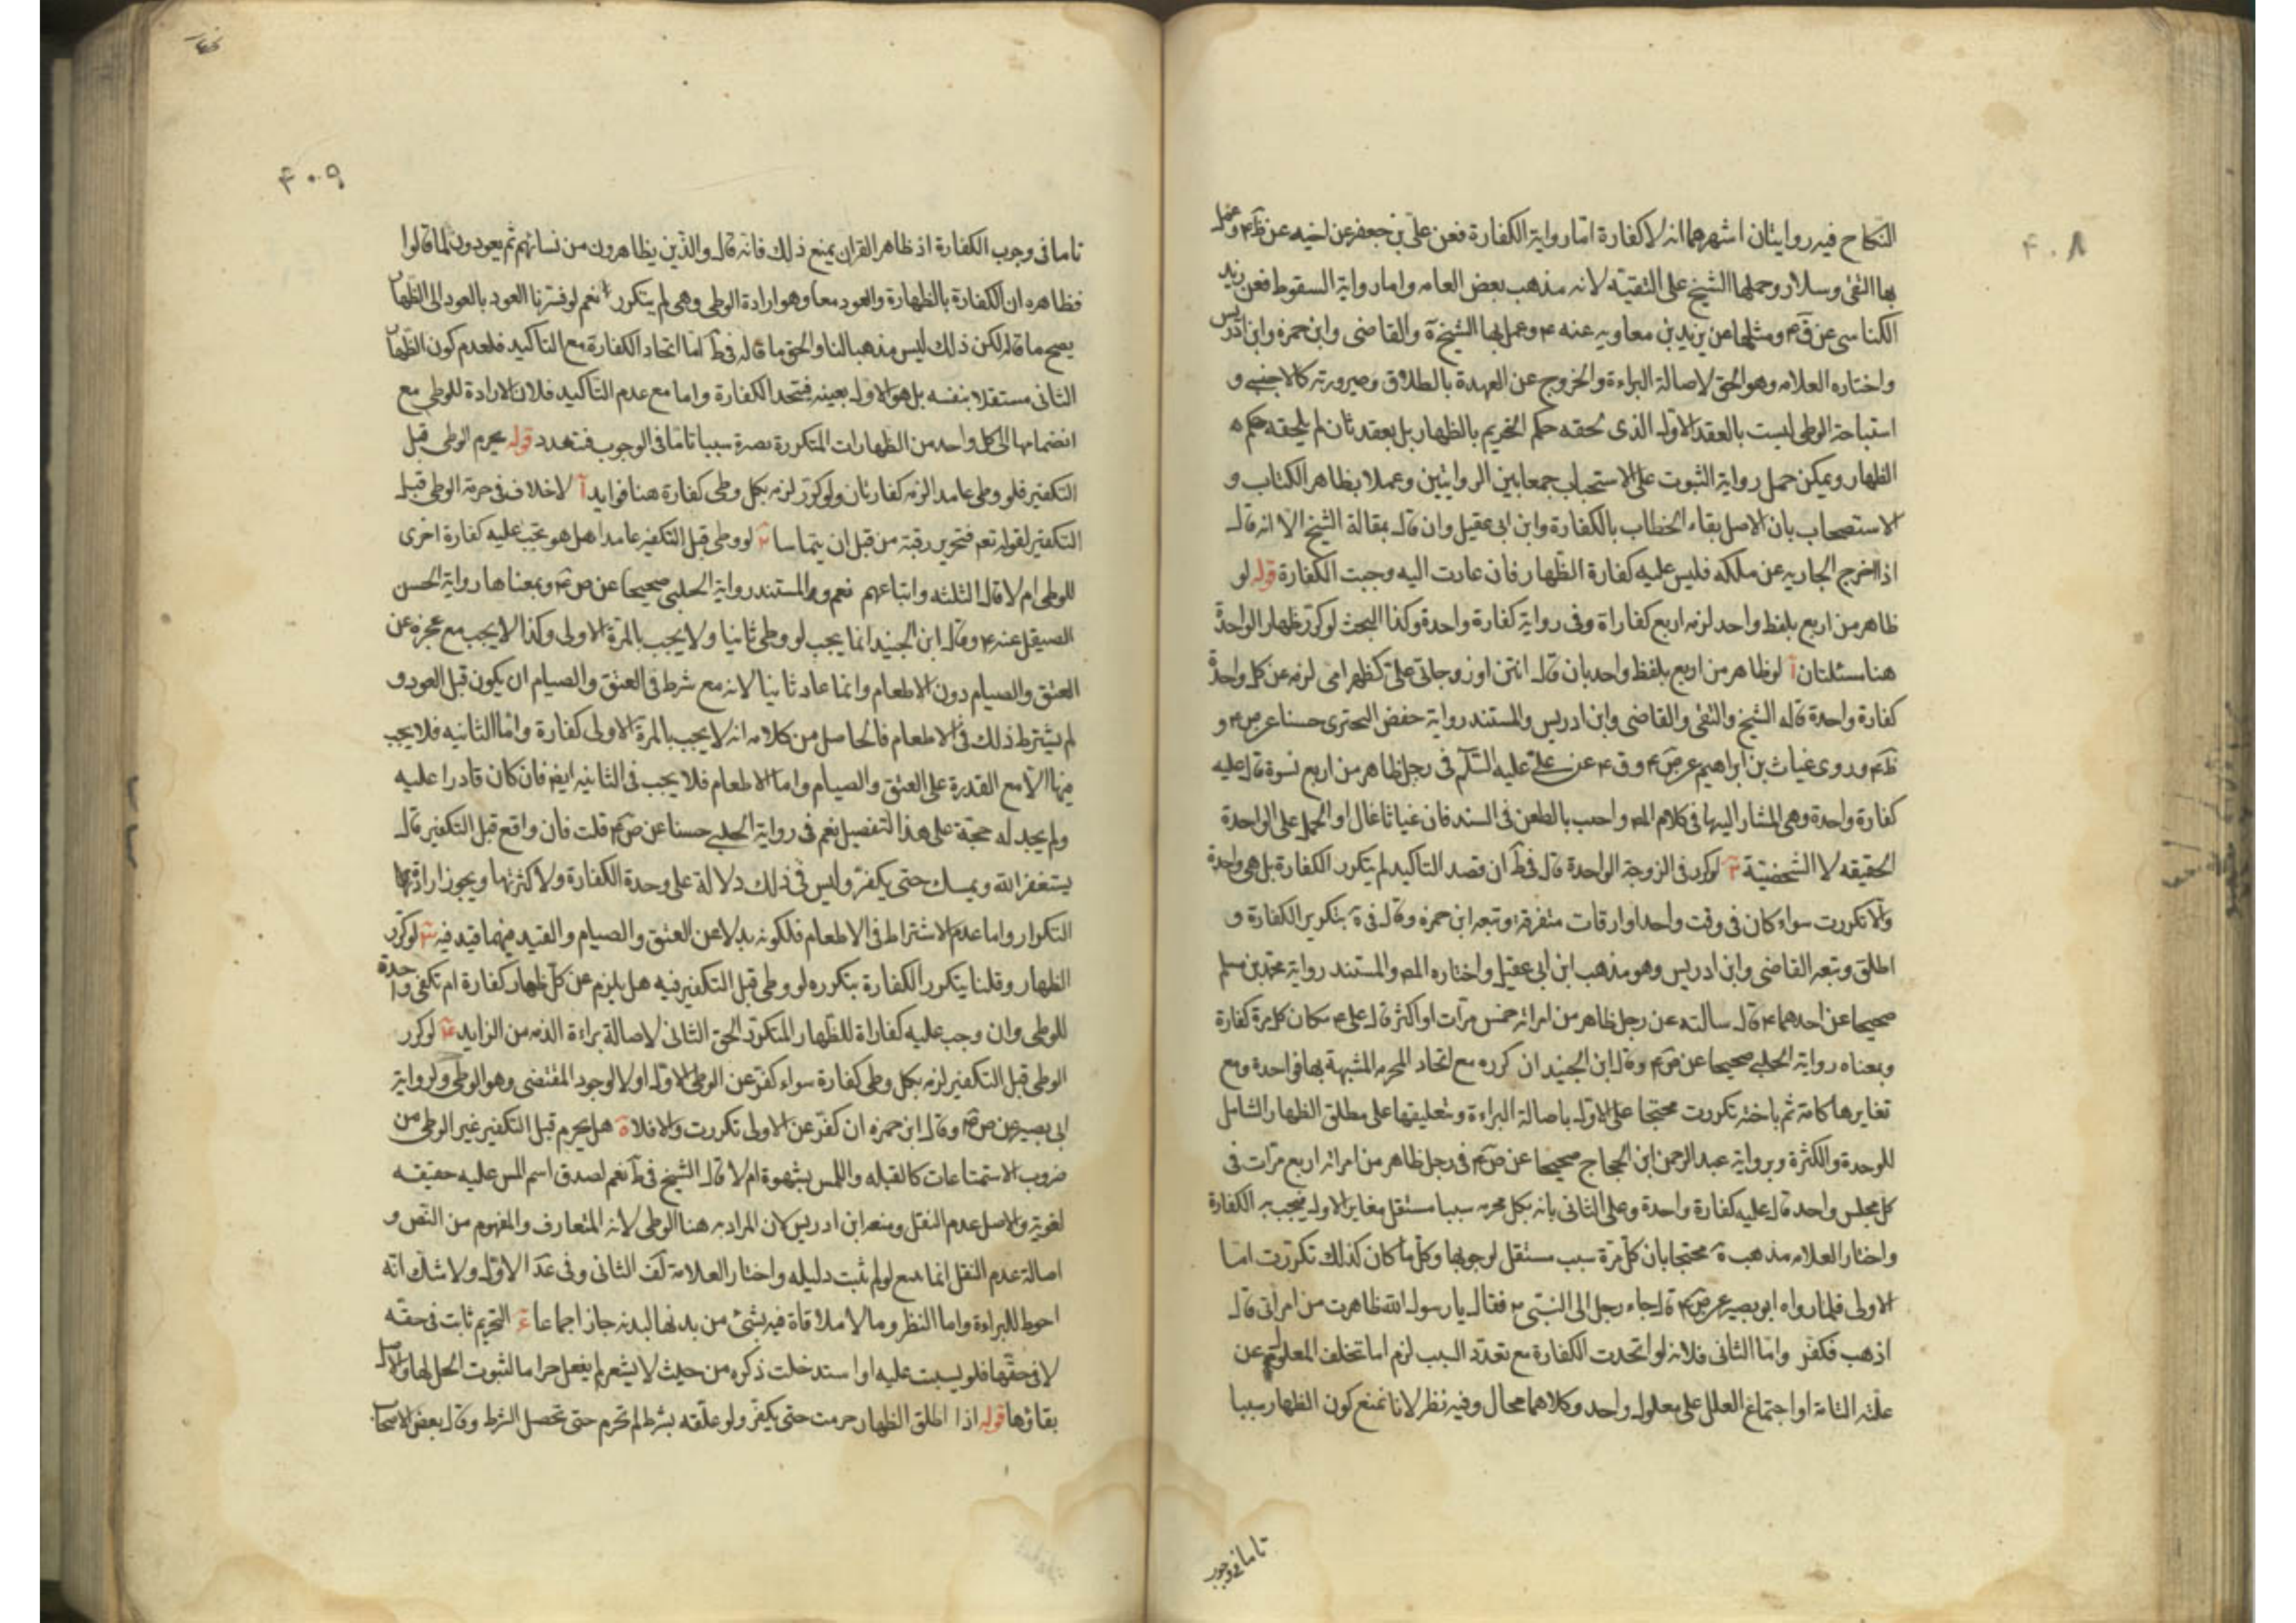 ۴۰۸
النكاح فيه روايتان اشهرهما انه لا كفارة اما رواية الكفارة فعن علي بن جعفر عن اخيه عن ظم ع وعمل
بها التقى وسلار وحملها الشيخ على التقية لانه مذهب بعض العامه واما رواية السقوط فعن يزيد
الكناسى عن ق ع ومثلها عن يزيد بن معاويه عنه ع وعمل بها الشيخ ة والقاضى وابن حمزه وابن ادريس
واختاره العلامه وهو الحق لاصالة البراءة والخروج عن العهدة بالطلاق وصيرورته كالاجنبى و
استباحة الوطى ليست بالعقد الاول الذى لحقه حكم التحريم بالظهار بل بعقد ثان لم يلحقه حكم
الظهار ويمكن حمل رواية الثبوت على الاستحباب جمعا بين الروايتين وعملا بظاهر الكتاب و
الاستصحاب بان الاصل بقاء الخطاب بالكفارة وابن ابى عقيل وان قال بمقالة الشيخ الا انه قال
اذا اخرج الجاريه عن ملكه فليس عليه كفارة الظهار فان عادت اليه وجبت الكفارة قوله لو
ظاهر من اربع بلفظ واحد لزمه اربع كفاراة وفى رواية كفارة واحدة وكذا البحث لو كرر ظهار الواحدة
هنا مسئلتان آ لو ظاهر من اربع بلفظ واحد بان قال انتن او زوجاتى على كظهر امى لزمه عن كل واحدة
كفارة واحدة قاله الشيخ والتقى والقاضى وابن ادريس والمستند رواية حفص البحترى حسنا عن ص ع و
ظم ع وروى غياث بن ابراهيم عن ص ع وق ع عن على عليه السلم فى رجل ظاهر من اربع نسوة قال عليه
كفارة واحدة وهى المشار اليها فى كلام المص واجيب بالطعن فى السند فان غياثا غال او الحمل على الواحدة
الحقيقه لا الشخصية ب لو كرر فى الزوجة الواحدة قال فى ط ان قصد التاكيد لم يتكرر الكفارة بل هى واحدة
والا تكررت سواء كان فى وقت واحد او اوقات متفرقة وتبعه ابن حمزه وقال فى ة بتكرير الكفارة و
اطلق وتبعه القاضى وابن ادريس وهو مذهب ابن ابى عقيل واختاره المص والمستند رواية محمد بن مسلم
صحيحا عن احدهما ع قال سالته عن رجل ظاهر من امراته خمس مرات او اكثر قال على ع مكان كل مرة كفارة
وبمعناه رواية الحلبى صحيحا عن ص ع وقال ابن الجنيد ان كرره مع اتحاد المحرم المشبهة بها فواحدة ومع
تغايرها كامه ثم باخته تكررت محتجا على الاول باصالة البراءة وتعليقها على مطلق الظهار الشامل
للوحدة والكثرة وبرواية عبد الرحمن ابن الحجاج صحيحا عن ص ع فى رجل ظاهر من امراته اربع مرات فى
كل مجلس واحد قال عليه كفارة واحدة وعلى الثانى بانه بكل محرم سببا مستقل مغاير الاول فيجب به الكفارة
واختار العلامه مذهب ة محتجا بان كل مرة سبب مستقل لوجوبها وكل ما كان كذلك تكررت اما
الاولى فلما رواه ابو بصير عن ص ع قال جاء رجل الى النبى ص فقال يا رسول الله ظاهرت من امراتى قال
اذهب فكفر واما الثانى فلانه لو اتحدت الكفارة مع تعدد السبب لزم اما تخلف المعلول عن
علته التامة او اجتماع العلل على معلول واحد وكلاهما محال وفيه نظر لانا نمنع كون الظهار سببا
تاما فى وجوب
۴۰۹
تاما فى وجوب الكفارة اذ ظاهر القران يمنع ذلك فانه قال والذين يظاهرون من نسائهم ثم يعودون لما قالوا
فظاهره ان الكفارة بالظهارة والعود معا وهو ارادة الوطى وهى لم يتكرر نعم لو فسرنا العود بالعود الى الظهار
يصح ما قاله لكن ذلك ليس مذهبا لنا والحق ما قاله فى ط اما اتحاد الكفارة مع التاكيد فلعدم كون الظهار
الثانى مستقلا بنفسه بل هو الاول بعينه فيتحد الكفارة واما مع عدم التاكيد فلان الارادة للوطى مع
انضمامها الى كل واحد من الظهارات المتكررة تصره سببا تاما فى الوجوب فتعدد قوله يحرم الوطى قبل
التكفير فلو وطى عامدا لزمه كفارتان ولو كرر لزمه بكل وطى كفارة هنا فوايد آ لا خلاف فى حرمة الوطى قبل
التكفير لقوله تعم فتحرير رقبة من قبل ان يتماسا ب لو وطى قبل التكفير عامدا هل هو يجب عليه كفارة اخرى
للوطى ام لا قال الثلثه واتباعهم نعم والمستند رواية الحلبى صحيحا عن ص ع وبمعناها رواية الحسن
الصيقل عنه ع وقال ابن الجنيد انما يجب لو وطى ثانيا ولا يجب بالمرة الاولى وكذا لا يجب مع عجزه عن
العتق والصيام دون الاطعام وانما عاد ثانيا لانه مع شرط فى العتق والصيام ان يكون قبل العود و
لم يشترط ذلك فى الاطعام فالحاصل من كلامه انه لا يجب بالمرة الاولى كفارة واما الثانيه فلا يجب
فيها الا مع القدرة على العتق والصيام واما الاطعام فلا يجب فى الثانيه ايض فان كان قادرا عليه
ولم يجد له حجة على هذا التفصيل نعم فى رواية الحلبى حسنا عن ص ع قلت فان واقع قبل التكفير قال
يستغفر الله ويمسك حتى يكفر وليس فى ذلك دلالة على وحدة الكفارة ولا كثرتها ويجوز ارادتها
التكرار واما عدم الاشتراط فى الاطعام فلكونه بدلا عن العتق والصيام والقيد فيهما قيد فيه ج لو كرر
الظهار وقلنا يتكرر الكفارة بتكرره لو وطى قبل التكفير فيه هل يلزم عن كل ظهار كفارة ام تكفى واحدة
للوطى وان وجب عليه كفاراة للظهار المتكرر الحق الثانى لاصالة براءة الذمه من الزايد د لو كرر
الوطى قبل التكفير لزمه بكل وطى كفارة سواء كفر عن الوطى الاول او لا لوجود المقتضى وهو الوطى ولرواية
ابى بصير عن ص ع وقال ابن حمزه ان كفر عن الاولى تكررت والا فلا ه هل يحرم قبل التكفير غير الوطى من
ضروب الاستمتاعات كالقبله واللمس بشهوة ام لا قال الشيخ فى ط نعم لصدق اسم المس عليه حقيقه
لغوية والاصل عدم النقل ومنعه ابن ادريس لان المراد به هنا الوطى لانه المتعارف والمفهوم من النص و
اصالة عدم النقل انما مع لو لم ثبت دليله واختار العلامه لف الثانى وفى عد الاول ولا شك انه
احوط للبراءة واما النظر وما لا ملاقاة فيه بشئ من بدنها لبدنه جاز اجماعا و التحريم ثابت فى حقه
لا فى حقها فلو يسبت عليه او استدخلت ذكره من حيث لا يشعر لم يفعل حراما لثبوت الحل لها والاصل
بقاؤها قوله اذا اطلق الظهار حرمت حتى يكفر ولو علقه بشرط لم تحرم حتى تحصل الشرط وقال بعض الاصحاب